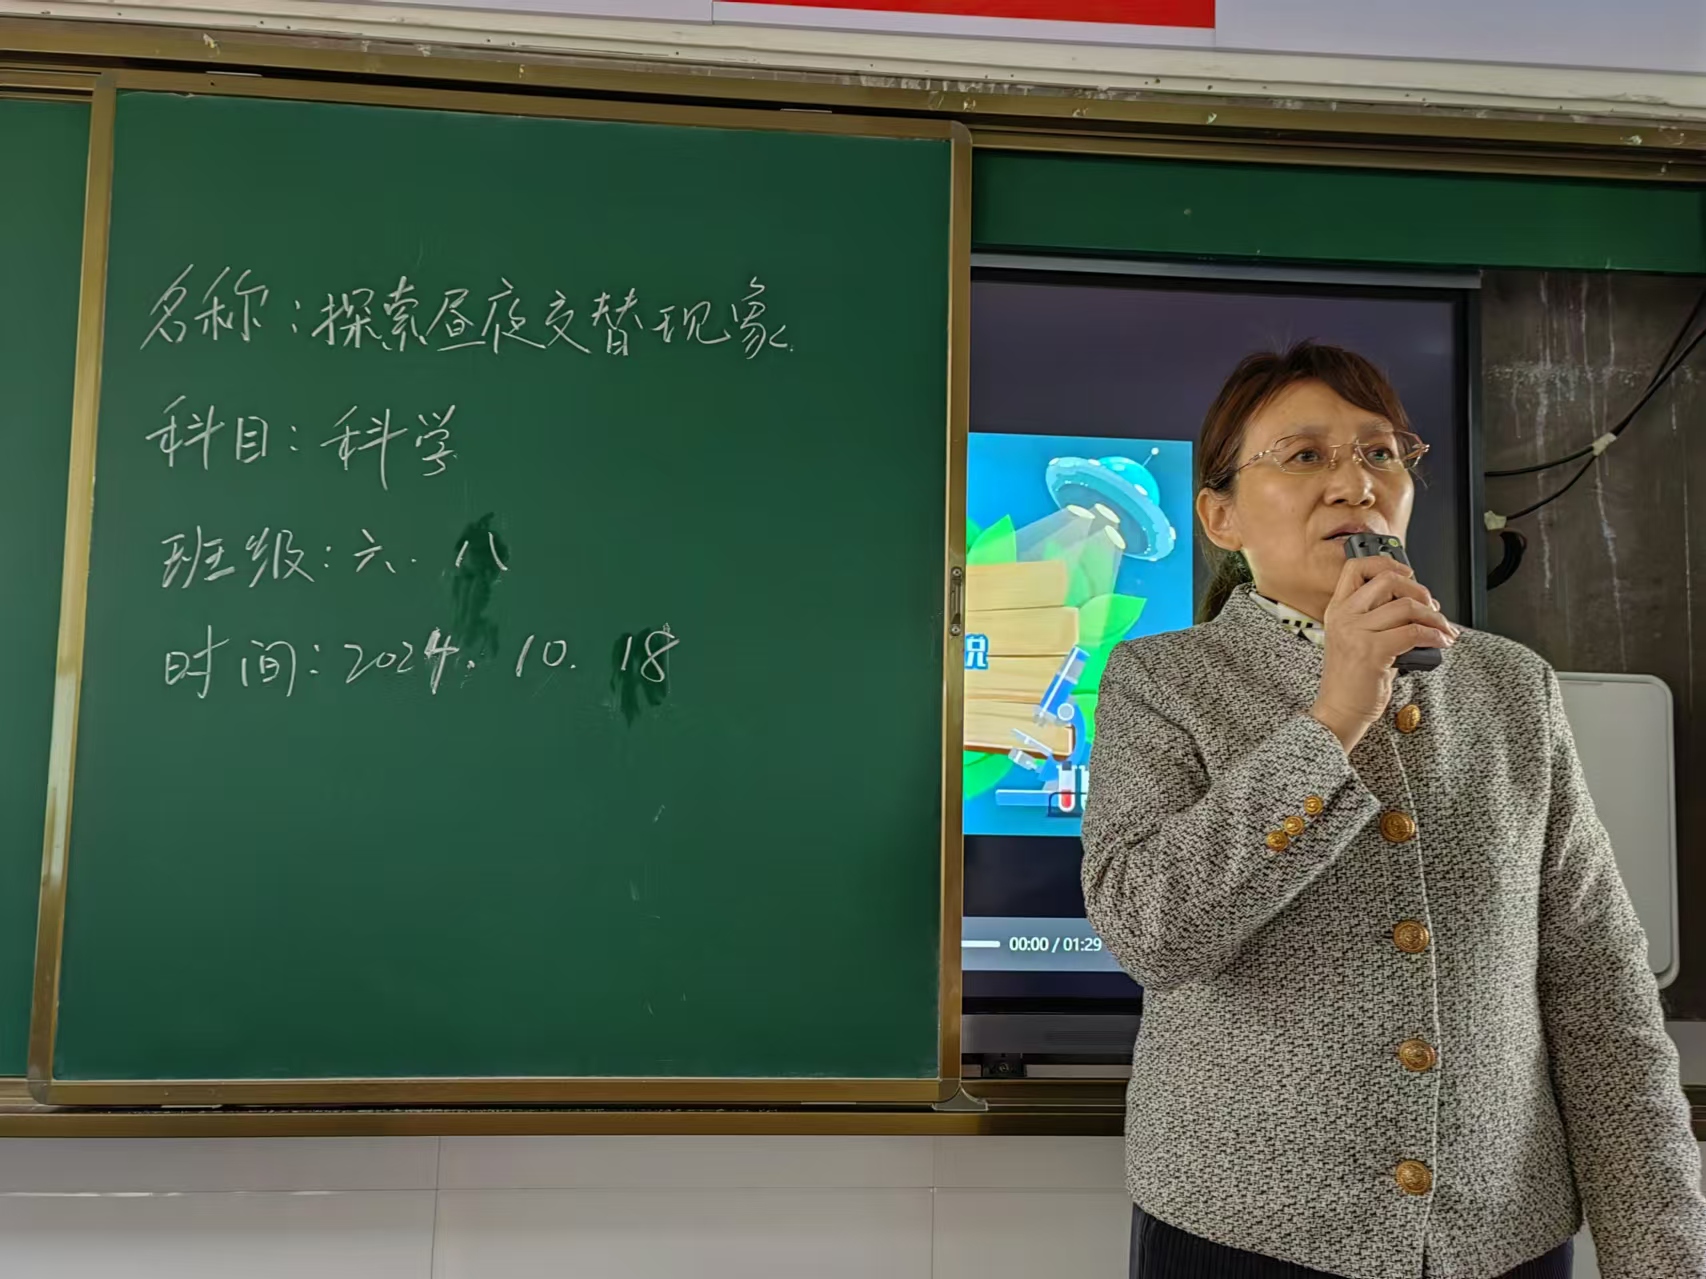 名称：探索昼夜交替现象
科目：科学
班级：六．八
时间：2024．10．18
说
00:00 / 01:29